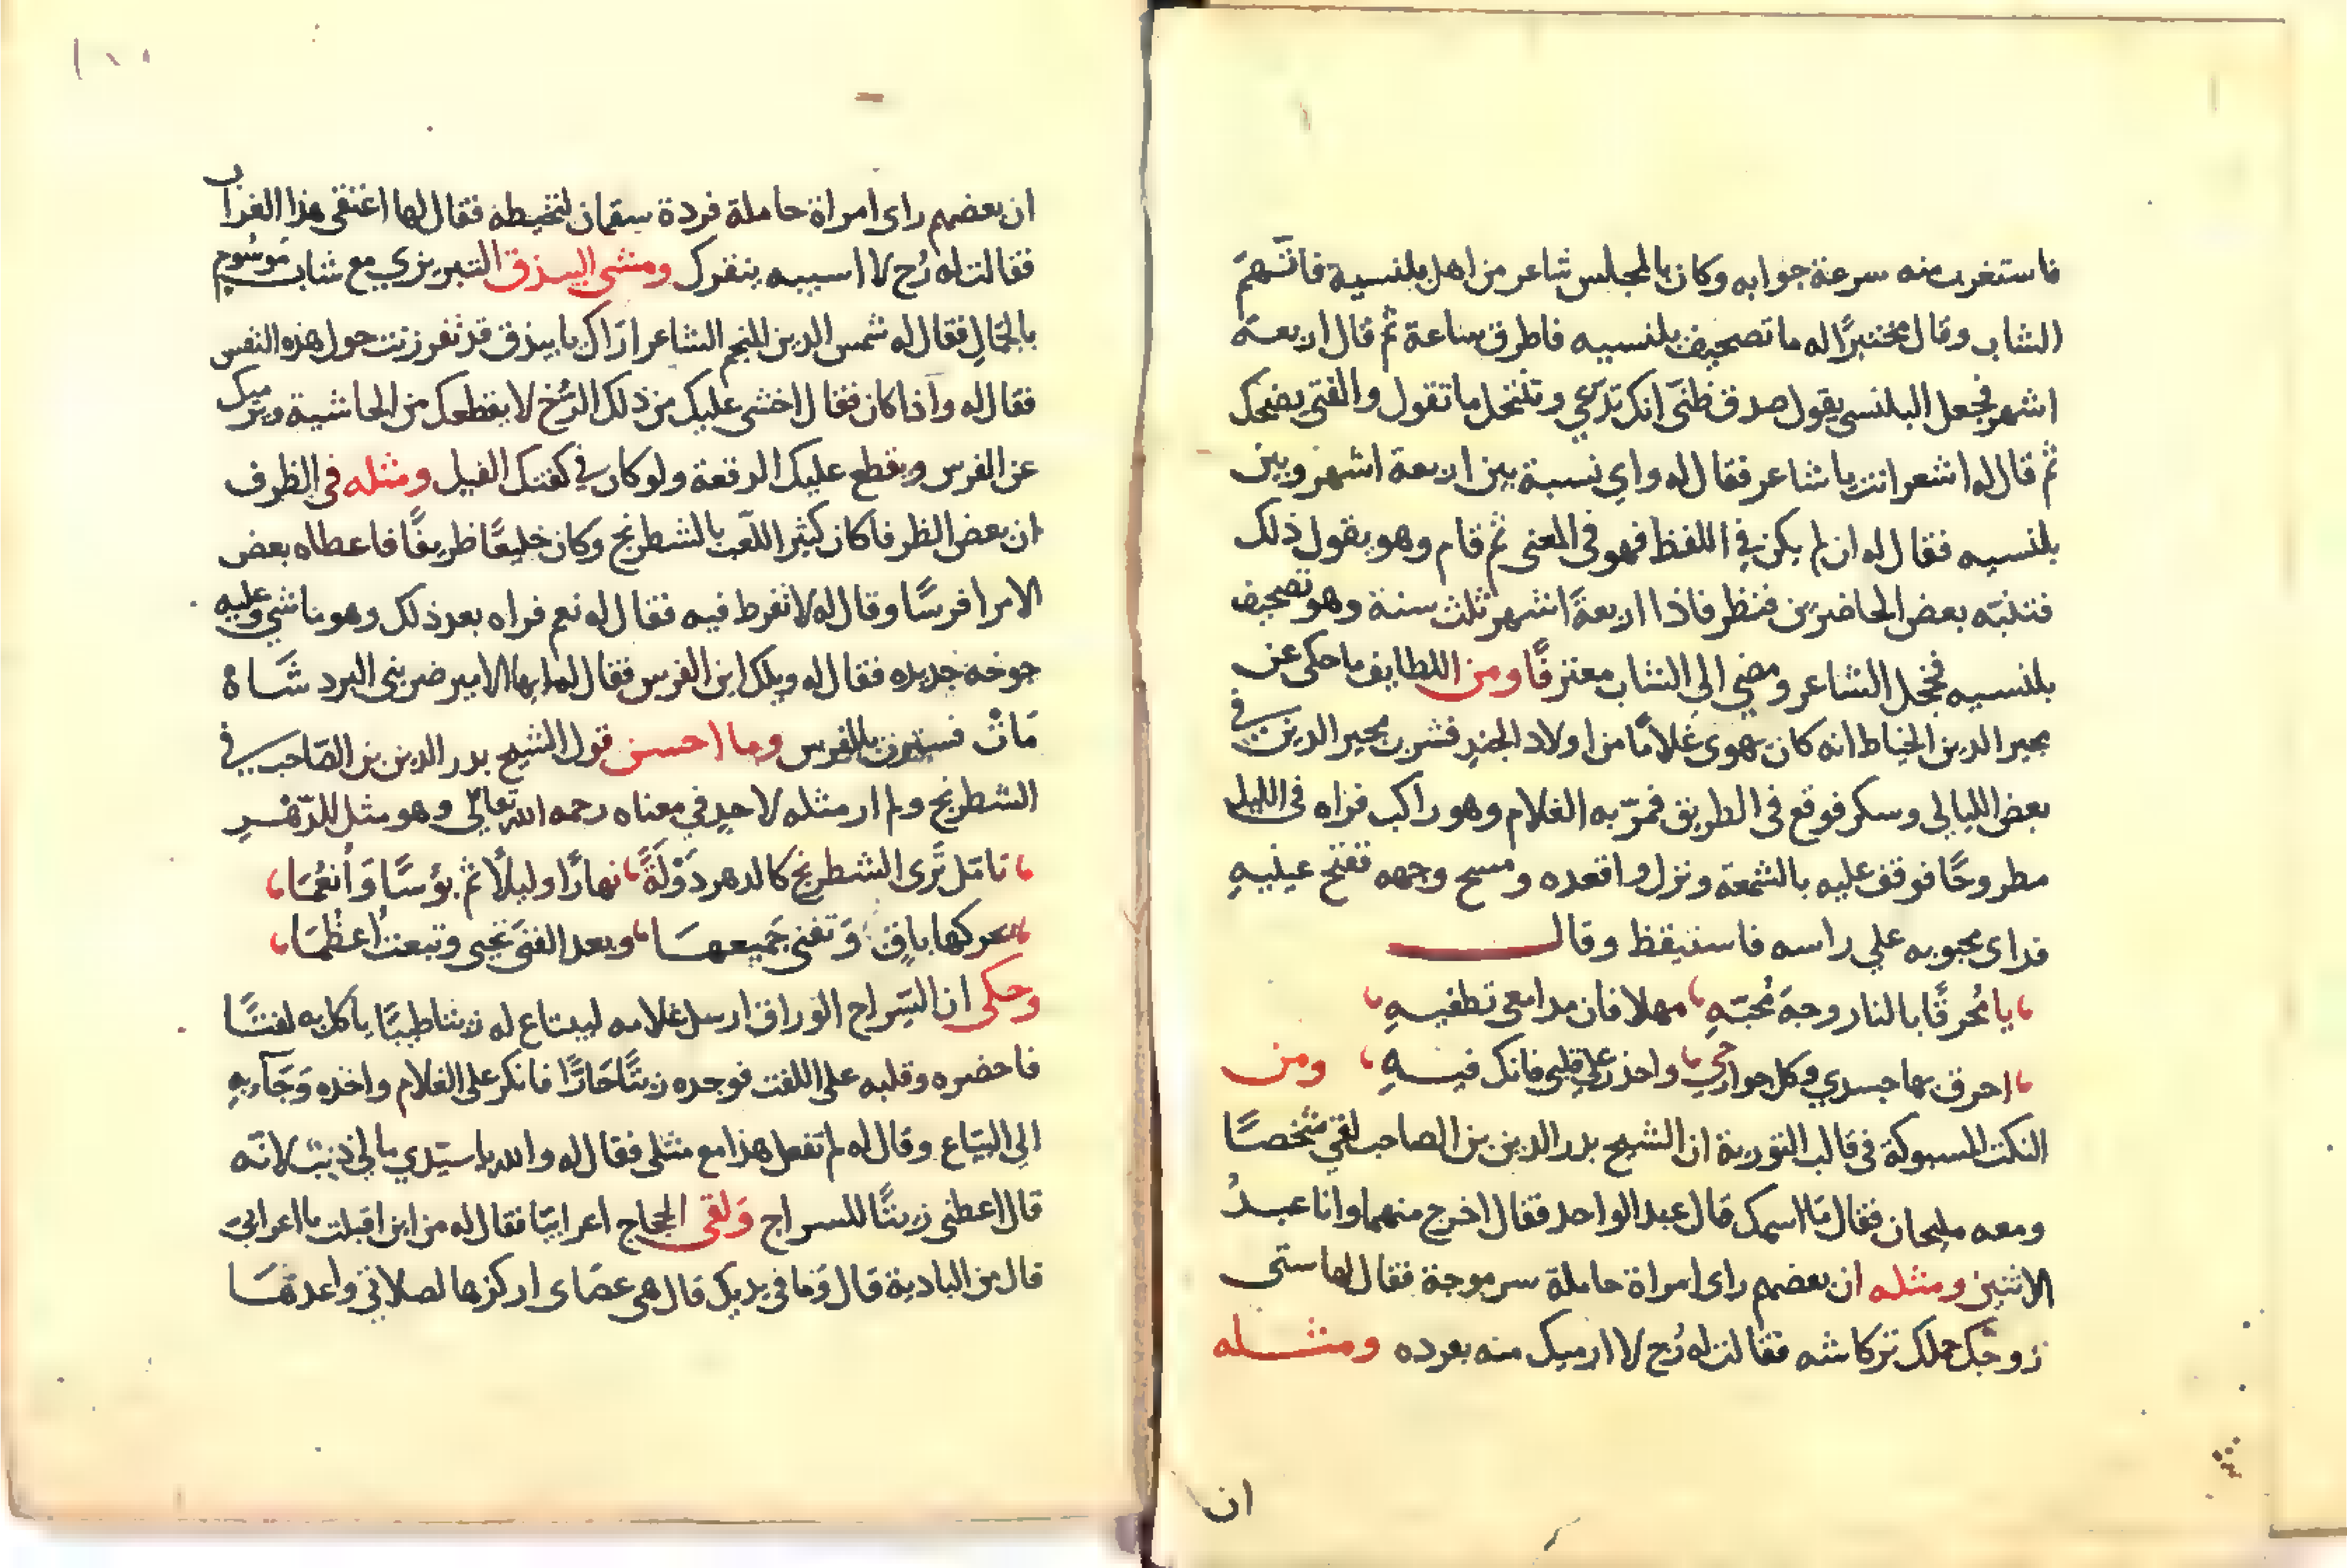 فاستغرب منه سرعة جوابه وكان بالمجلس شاعر من اهل بلنسية فاتهم
الشاب وقال مختبرًا له ما تصحيف بلنسيه فاطرق ساعة ثم قال اربعة
اشهر فجعل البلنسي يقول صدق ظنى انك تدعي وتنتحل ما تقول والفتى يضحك
ثم قال له اشعر انت يا شاعر فقال له واي نسبة بين اربعة اشهر وبين
بلنسيه فقال له ان لم يكن في اللفظ فهو فى المعنى ثم قام وهو يقول ذلك
فتنبّه بعض الحاضرين فنظر فاذا اربعة اشهر ثلث سنة وهو تصحيف
بلنسيه فخجل الشاعر ومضي الى الشاب معتزفًا ومن اللطايف ما حكى عن
مجير الدين الخياط انه كان يهوى غلامًا من اولاد الجند فشرب مجير الدين في
بعض الليالي وسكر فوقع فى الطريق فمرّ به الغلام وهو راكب فراه فى الليل
مطروحًا فوقف عليه بالشمعة ونزل واقعده ومسح وجهه ففتح عينيهِ
فراى محبوبه علي راسه فاستيقظ وقال
يا مُحرقًا بالنار وجهَ مُحبّهِ مهلا فان مدامعى تطفيهِ
احرق بها جسدي وكل جوارحي واحذر على قلبى فانك فيهِ ومن
النكت المسبوكة فى قالب التورية ان الشيخ بدر الدين بن الصاحب لقي شخصًا
ومعه مليحان فقال مَا اسمك قال عبد الواحد فقال اخرج منهما وانا عبدُ
الاثنين ومثله ان بعضهم راى امراة حاملة سرموجة فقال لها ستى
زوجك حملك تركاشه فقالت له رُح لا ارميك منه بفرده ومثله
ان
ان بعضهم راى امراة حاملة فردة سقمان لتخيطه فقال لها اعتقى هذا الغراب
فقالت له رُح لا اسيبه ينقرك ومشى البيذق التبريزي مع شاب موسُوم
بالجمالِ فقال له شمس الدين المنجم الشاعر ارَاك يا بيدق قد تفرزنت حول هذه النفس
فقال له وَاذا كان فقال اخشى عليك من ذلك الرُخ لا يقطعك من الحاشية ويرميك
عن الفرس ويقطع عليك الرقعة ولو كان في كفتك الفيل ومثله فى الظرف
ان بعض الظرفا كان كثير اللّعب بالشطرنج وكان خليعًا ظريفًا فاعطاه بعض
الامرا فرسًا وقال له لا تفرط فيه فقال له نعم فراه بعد ذلك وهو ماشي وعليه
جوخه جديده فقال له ويلك اين الفرس فقال له ايها الامير ضربنى البرد شَاه
مَاتْ فسترت بالفرس وما احسن قول الشيخ بدر الدين بن الصّاحب في
الشطرنج ولم ار مثله لاحدٍ في معناه رحمه الله تعالى وهو مثل للدّهرِ
تامّل تَرى الشطرنج كالدهر دَوْلَةً نهارًا وليلًا ثم بؤسًا وَأنعُمَا
محركها باقٍ وَتفنى جَميعهَا وبعد الفنَى تحيى وتبعث اعظُمَا
وحكى ان السّراج الوراق ارسل غلامه ليبتاع له زيتا طيبًا ياكل به لفتًا
فاحضره وقلبه على اللفت فوجده زيتًا حَارًا فانكر على الغلام واخذه وَجَآء بهِ
الى البيّاع وقال له لم تفعل هذا مع مثلى فقال له والله يا سيّدي ما لي ذنبٌ لانّه
قال اعطنى زيتًا للسراج وَلقى الحجاج اعرابيًا فقال له من اين اقبلت يا اعرابىّ
قال من البادية قال وَما في يديك قال هى عصَاى اركزها لصلاتى واعدهَا